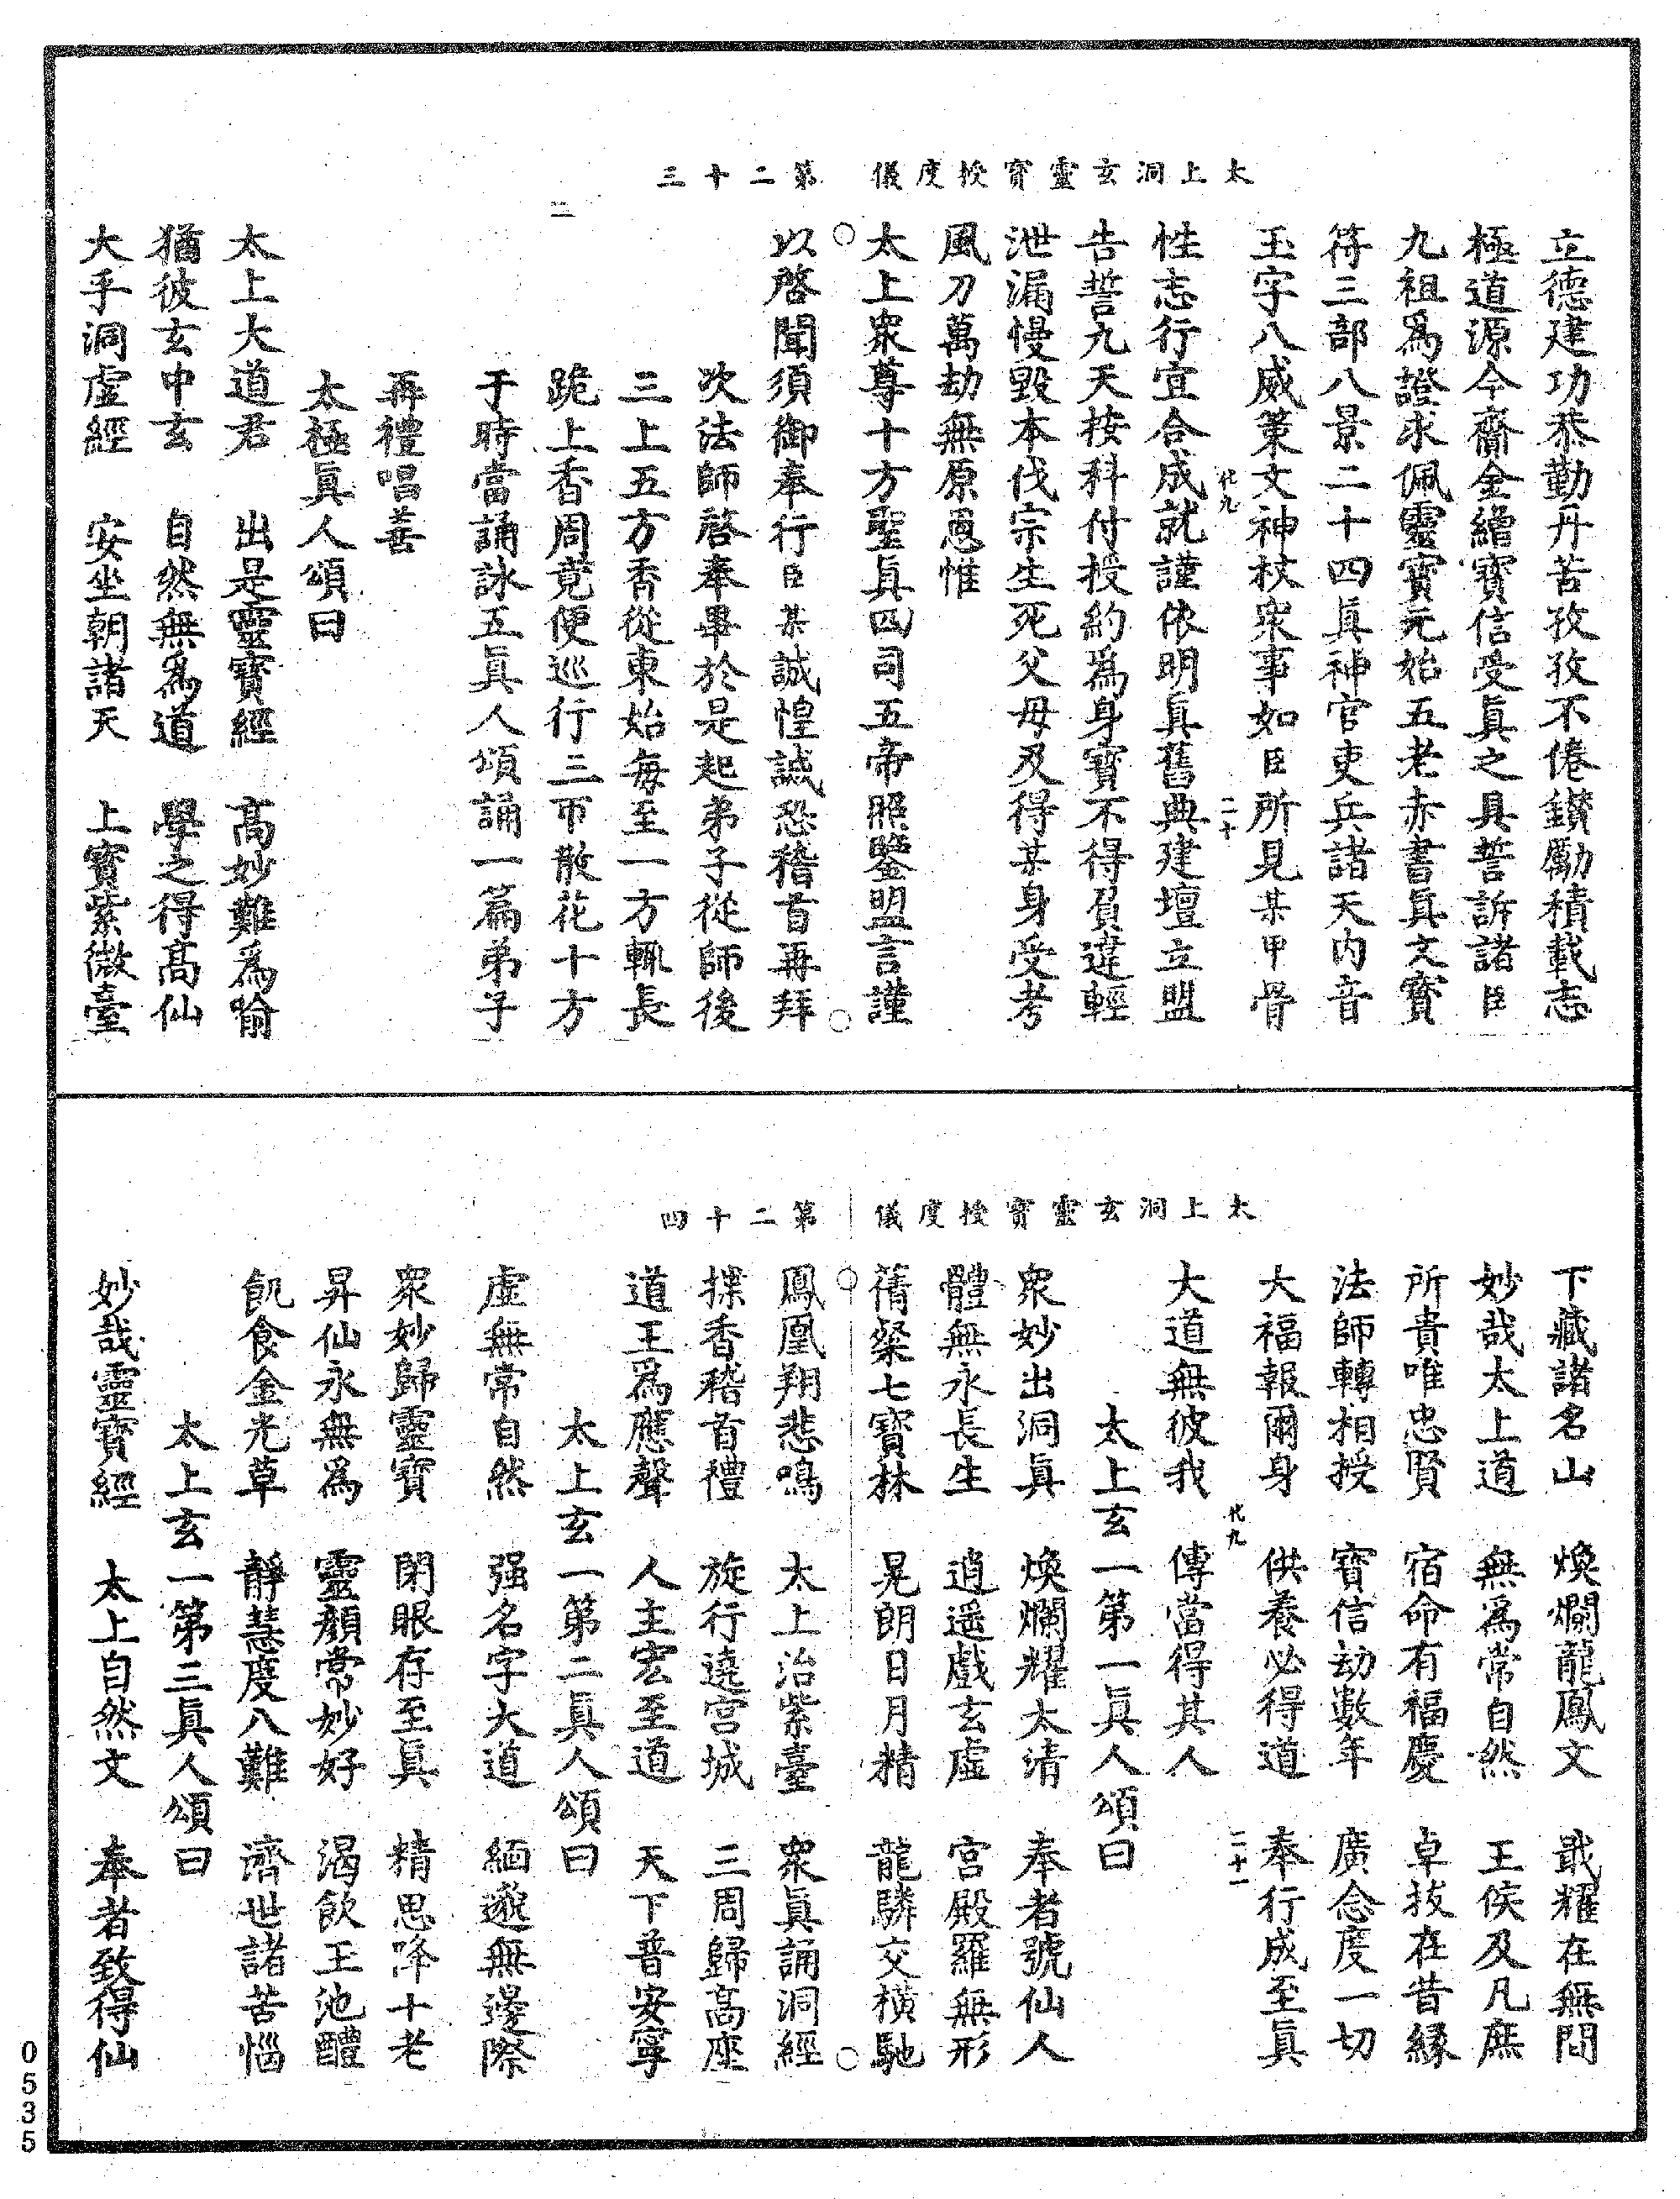 太上洞玄靈寶授度儀 第二十三
立德建功恭勤丹苦孜孜不倦鑚勵積載志
極道源今齎金繒寶信受眞之具誓訴諸臣
九祖爲證求佩靈寶元始五老赤書眞文寶
符三部八景二十四眞神官吏兵諸天内音
玉字八威策文神杖衆事如臣所見某甲骨
代九 二十
性志行宜合成就謹依明眞舊典建壇立盟
告誓九天按科付授約爲身寶不得負違輕
泄漏慢毀本伐宗生死父母及得某身受考
風刀萬劫無原恩惟
太上衆尊十方聖眞四司五帝照鑒盟言謹
以啓聞須御奉行臣某誠惶誠恐稽首再拜
次法師啓奉畢於是起弟子從師後
三上五方香從東始每至一方輒長
跪上香周竟便巡行三帀散花十方
二
于時當誦詠五眞人頌誦一篇弟子
再禮唱善
太極眞人頌曰
太上大道君 出是靈寶經 高妙難爲喻
猶彼玄中玄 自然無爲道 學之得高仙
大乎洞虛經 安坐朝諸天 上寶紫微臺
太上洞玄靈寶授度儀 第二十四
下藏諸名山 煥爛龍鳳文 戢耀在無間
妙哉太上道 無爲常自然 王侯及凡庶
所貴唯忠賢 宿命有福慶 卓拔在昔縁
法師轉相授 寶信劫數年 廣念度一切
大福報爾身 供養必得道 奉行成至眞
代九 二十一
大道無彼我 傳當得其人
太上玄一第一眞人頌曰
衆妙出洞眞 煥爛耀太清 奉者號仙人
體無永長生 逍遥戲玄虛 宮殿羅無形
蒨粲七寶林 晃朗日月精 龍驎交橫馳
鳳凰翔悲鳴 太上治紫臺 衆眞誦洞經
揲香稽首禮 旋行遶宮城 三周歸高座
道王爲應聲 人主宏至道 天下普安寧
太上玄一第二眞人頌曰
虛無常自然 强名字大道 緬邈無邊際
衆妙歸靈寶 閉眼存至眞 精思降十老
昇仙永無爲 靈顔常妙好 渴飲玉池醴
飢食金光草 靜慧度八難 濟世諸苦惱
太上玄一第三眞人頌曰
妙哉靈寶經 太上自然文 奉者致得仙
0535